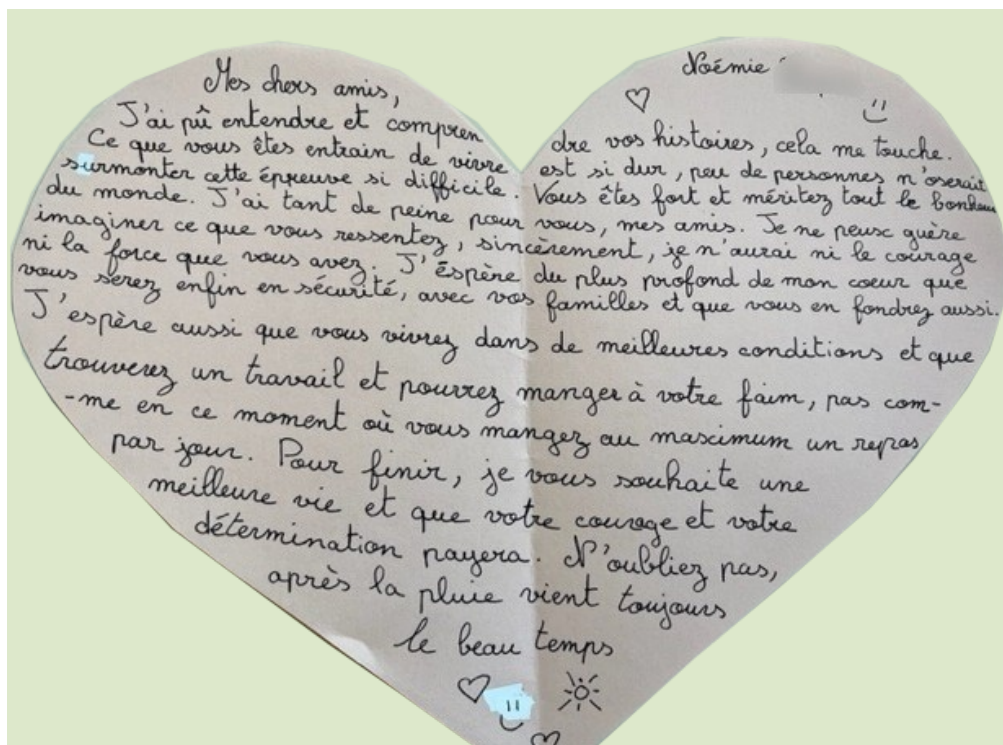 Noémie
Mes chers amis,
J'ai pû entendre et compren
dre vos histoires, cela me touche.
Ce que vous êtes entrain de vivre
est si dur, peu de personnes n'oserait
surmonter cette épreuve si difficile.
Vous êtes fort et méritez tout le bonheur
du monde. J'ai tant de peine pour vous, mes amis. Je ne peux guère
imaginer ce que vous ressentez, sincèrement, je n'aurai ni le courage
ni la force que vous avez. J'éspère du plus profond de mon coeur que
vous serez enfin en sécurité, avec vos familles et que vous en fondrez aussi.
J'espère aussi que vous vivrez dans de meilleures conditions et que
trouverez un travail et pourrez manger à votre faim, pas com-
-me en ce moment où vous mangez au maximum un repas
par jour. Pour finir, je vous souhaite une
meilleure vie et que votre courage et votre
détermination payera. N'oubliez pas,
après la pluie vient toujours
le beau temps